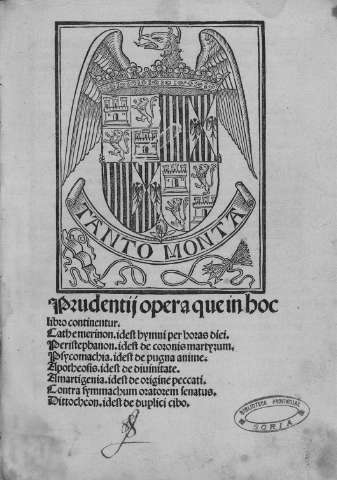 TANTO MONTA
Prudentij opera que in hoc
libro continentur.
Cathemerinon. idest hymni per horas diei.
Peristephanon. idest de coronis martyrum.
Psycomachia. idest de pugna anime.
Apotheosis. idest de diuinitate.
Amartigenia. idest de origine peccati.
Contra symmachum oratorem senatus.
Dittocheon. idest de duplici cibo.
BIBLIOTECA PROVINCIAL
SORIA